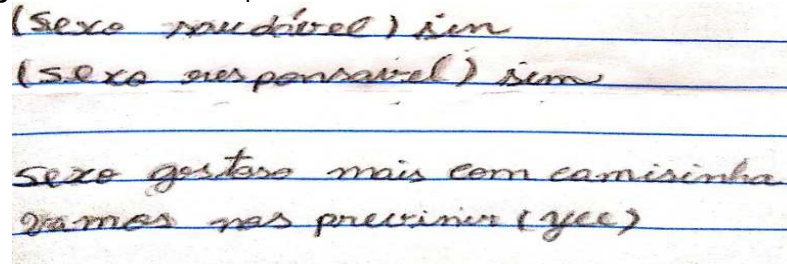 (Sexo saudável) sim
(sexo responsavel) sim
sexo gostoso mais com camisinha
vamos nos previnir (yee)